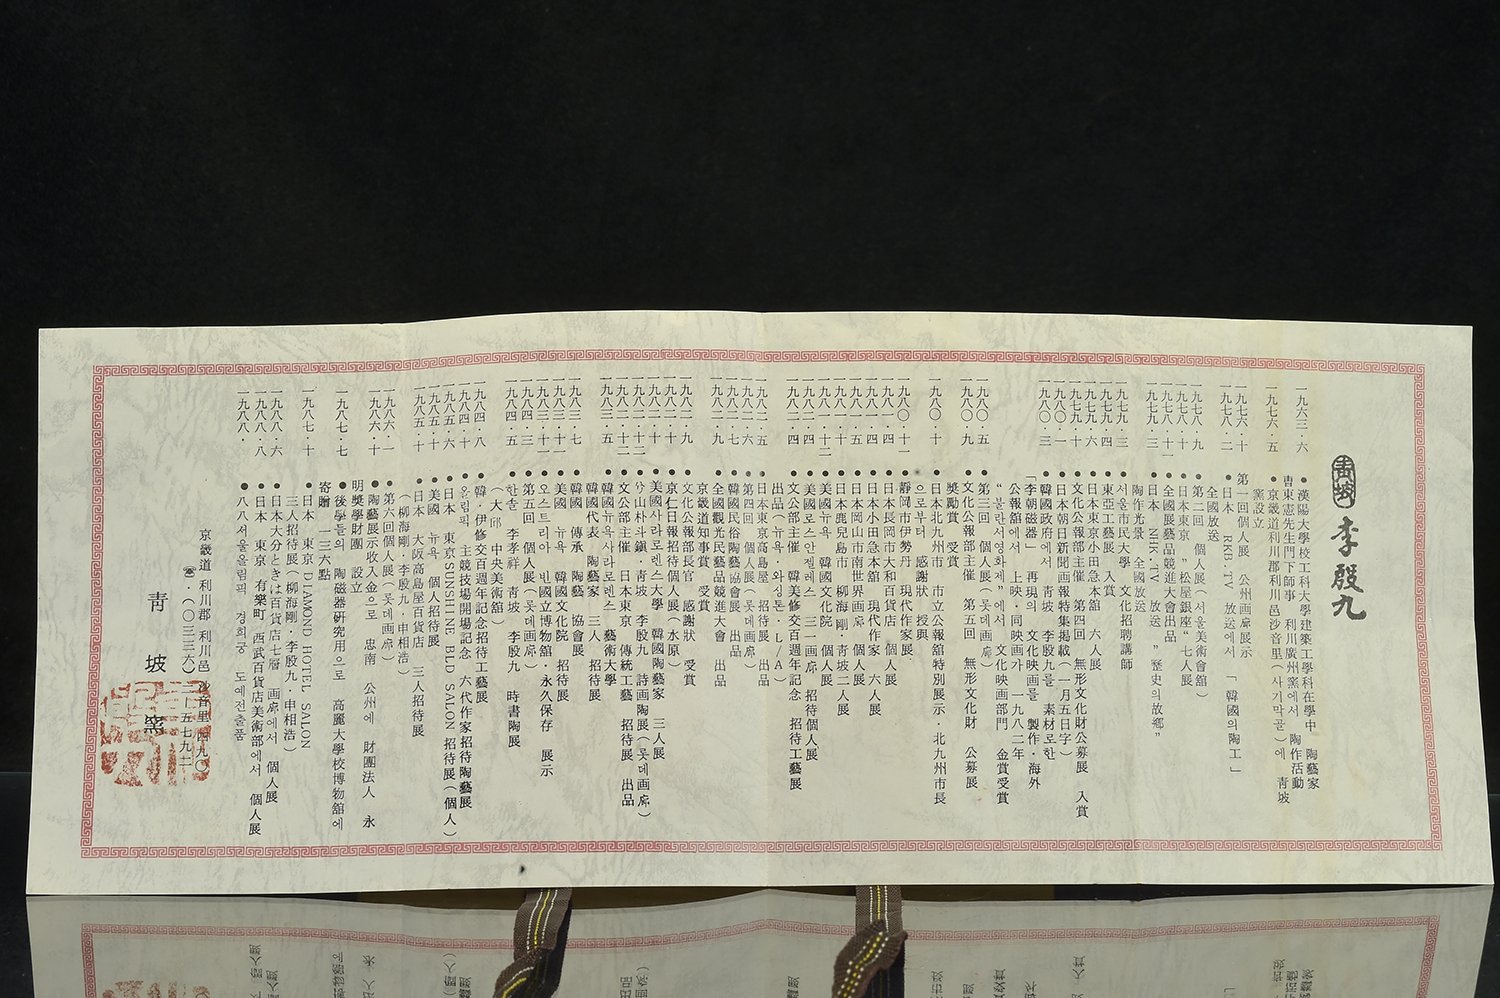 靑坡 李殷九
一九六三·六 ●漢陽大學校工科大學建築工學科在學中 陶藝家
靑東憲先生門下師事 利川廣州窯에서 陶作活動
一九七六·五 ●京畿道利川郡利川邑沙音里(사기막골)에 靑坡
窯設立
一九七六·十 第一回個人展 公州画廊展示
一九七八·二 ●日本 RKB.TV 放送에서 「韓國의陶工」
全國放送
一九七八·九 ●第二回 個人展(서울美術會館)
一九七八·十 ●日本東京 "松屋銀座" 七人展
一九七八·十一 ●全國民藝品競進大會出品
一九七九·三 ●日本 NHK·TV 放送 "歷史의故鄕"
陶作光景 全國放送
一九七九·三 ●서울市民大學 文化招聘講師
一九七九·四 ●東亞工藝展 入賞
一九七九·六 ●日本東京小田急本舘 六人展
一九七九·十 ●文化公報部主催 第四回 無形文化財公募展 入賞
一九八〇·一 ●日本朝日新聞画報特集揭載(一月五日字)
一九八〇·三 ●韓國政府에서 靑坡 李殷九를 素材로한
「李朝磁器」 再現의 文化映画를 製作·海外
公報舘에서 上映·同映画가 一九八二年
"불란서영화제"에서 文化映画部門 金賞受賞
一九八〇·五 ●第三回 個人展(롯데画廊)
一九八〇·九 ●文化公報部主催 第五回 無形文化財 公募展
奬勵賞 受賞
一九八〇·十 ●日本北九州市 市立公報舘特別展示·北九州市長
으로부터 感謝狀 授與
一九八〇·十一 ●靜岡市伊勢丹 現代作家展
一九八一·四 ●日本長岡市大和百貨店 個人展
一九八一·四 ●日本小田急本舘 現代作家 六人展
一九八一·五 ●日本岡山市南世界画廊 個人展
一九八一·十 ●日本鹿兒島市 柳海剛·靑坡二人展
一九八一·十二 ●美國뉴욕 韓國文化院 個人展
●美國로스안젤레스 三一画廊 招待個人展
一九八二·四 ●文公部主催 韓美修交百週年記念 招待工藝展
出品(뉴욕·와싱톤·L/A)
一九八二·五 ●日本東京高島屋 招待展 出品
一九八二·六 ●第四回 個人展(롯데画廊)
一九八二·七 ●韓國民俗陶藝協會展 出品
一九八二·九 ●全國觀光民藝品競進大會 出品
京畿道知事賞 受賞
一九八二·九 ●文化公報部長官 感謝狀 受賞
一九八二·十 ●京仁日報招待個人展(水原)
一九八二·十 ●美國사라로렌스大學 韓國陶藝家 三人展
一九八二·十二 ●兮山朴斗鎭·靑坡 李殷九 詩画陶展(롯데画廊)
一九八二·十二 ●文公部主催 日本東京 傳統工藝 招待展 出品
一九八三·五 ●韓國뉴욕사라로렌스 藝術大學
韓國代表 陶藝家 三人 招待展
一九八三·七 ●韓國 傳承 陶藝 協會展
一九八三·十 ●美國 뉴욕 韓國文化院 招待展
一九八三·十一 ●오스트리아 빈國立博物舘·永久保存 展示
一九八四·三 ●第五回 個人展(롯데画廊)
一九八四·五 ●한솔 李孝祥 靑坡 李殷九 時書陶展
(大邱 中央美術舘)
一九八四·八 ●韓·伊修交百週年記念招待工藝展
一九八四·十 ●올림픽 主競技場開場記念 六代作家招待陶藝展
一九八五·六 ●日本 東京SUNSHINE BLD SALON 招待展(個人)
一九八五·十 ●美國 뉴욕 個人招待展
一九八五·十 ●日本 大阪高島屋百貨店 三人招待展
(柳海剛·李殷九·申相浩)
一九八六·一 ●第六回個人展(롯데画廊)
一九八六·十 ●陶藝展示收入金으로 忠南 公州에 財團法人 永
明奬學財團 設立
一九八七·七 ●後學들의 陶磁器硏究用으로 高麗大學校博物舘에
寄贈 一三六點
一九八七·十 ●日本 東京 DIAMOND HOTEL SALON
三人招待展(柳海剛·李殷九·申相浩)
一九八八·六 ●日本大分ときは百貨店七層 画廊에서 個人展
一九八八·八 ●日本 東京 有樂町 西武百貨店美術部에서 個人展
一九八八· ●八八서울올림픽 경희궁 도예전출품
京畿道 利川郡 利川邑 沙音里四九〇
☎·(〇三三六) 二-五七九二
靑坡窯